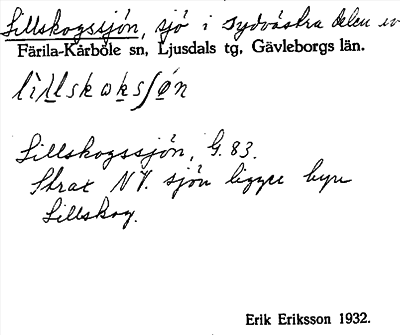 Lillskogssjön, sjö i sydvästra delen av
Färila-Kårböle sn, Ljusdals tg, Gävleborgs län.
Lillskogssjön, G. 83.
Strax NV. sjön ligger byn
Lillskog.
Erik Eriksson 1932.